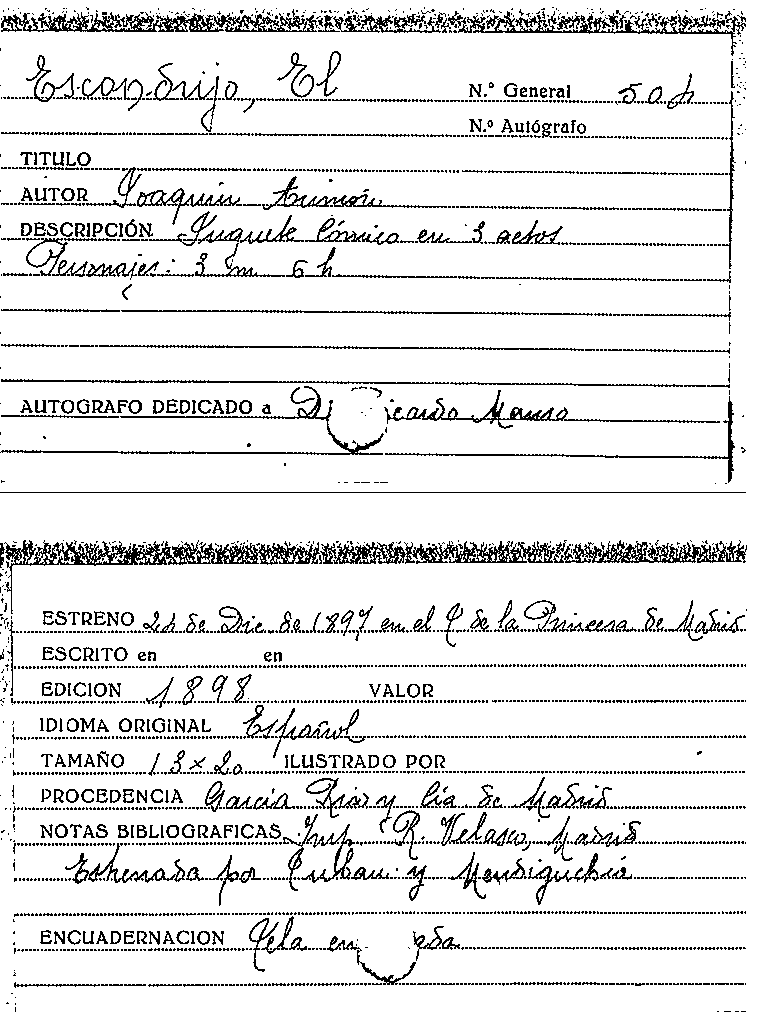 Escondrijo, El N.º General 504
N.º Autógrafo
TITULO
AUTOR Joaquin Arimón
DESCRIPCIÓN Juguete Cómico en 3 actos
Personajes: 3 m 6 h
AUTOGRAFO DEDICADO a D icardo Manso
ESTRENO 24 de Dic. de 1897 en el T de la Princesa de Madrid
ESCRITO en en
EDICION 1898 VALOR
IDIOMA ORIGINAL Español
TAMAÑO 13 x 20 ILUSTRADO POR
PROCEDENCIA Garcia Diaz y Cía de Madrid
NOTAS BIBLIOGRAFICAS Imp. R. Velasco, Madrid
Estrenada por y Mendiguchia
ENCUADERNACION Tela en